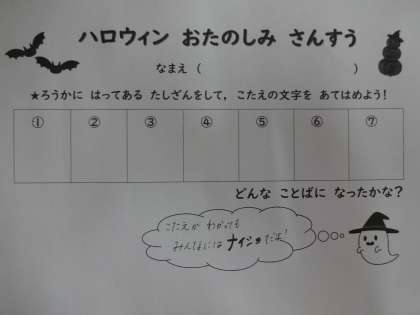 ハロウィン おたのしみ さんすう
なまえ（　　　　　　　　）
★ろうかに はってある たしざんをして，こたえの文字を あてはめよう！
① ② ③ ④ ⑤ ⑥ ⑦
どんな ことばに なったかな？
こたえが わかっても
みんなには ナイショだよ！